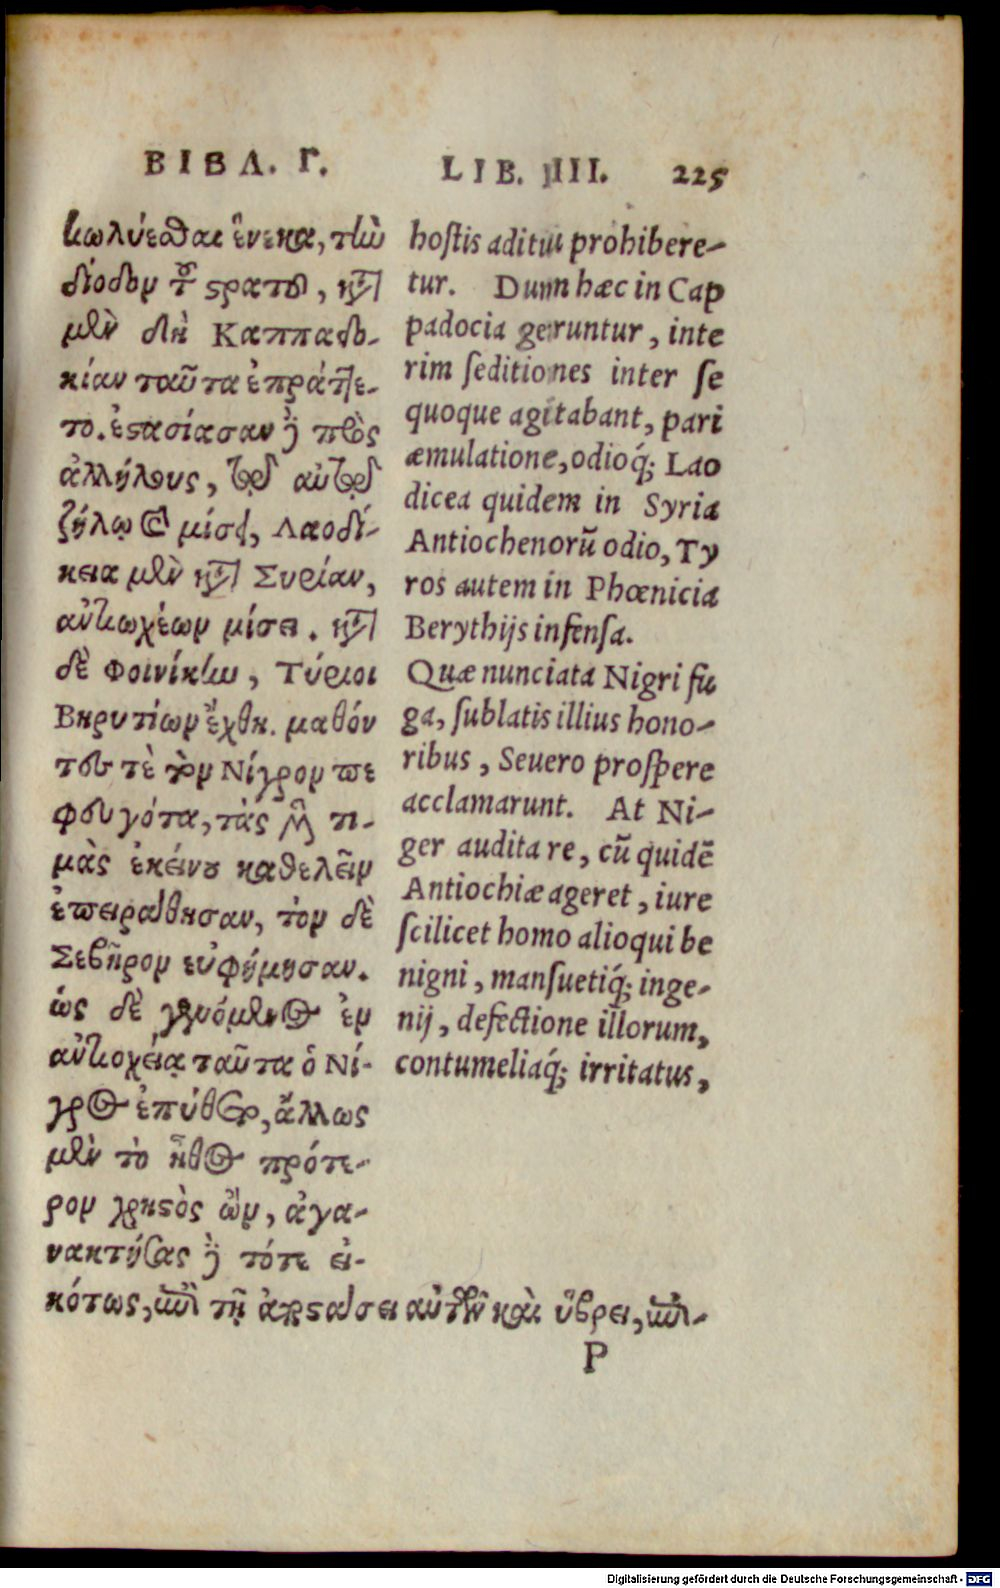 ΒΙΒΛ. Γ.
κωλύεσθαι ἕνεκα, τὴν
δίοδον τοῦ στρατοῦ, κατὰ
μὲν δὴ Καππαδο-
κίαν ταῦτα ἐπράττε-
το. ἐστασίασαν δὲ πρὸς
ἀλλήλους, τῷ αὐτῷ
ζήλῳ καὶ μίσει, Λαοδί-
κεια μὲν κατὰ Συρίαν,
ἀντιοχέων μίσει. κατὰ
δὲ Φοινίκην, Τύριοι
Βηρυτίων ἔχθει. μαθόν
τες τὲ τὸν Νίγρον πε
φευγότα, τὰς μὲν τι-
μὰς ἐκείνου καθελεῖν
ἐπειράθησαν, τὸν δὲ
Σεβῆρον εὐφήμησαν.
ὡς δὲ γενόμενος ἐν
ἀντιοχείᾳ ταῦτα ὁ Νί-
γρος ἐπύθετο, ἄλλως
μὲν τὸ ἦθος πρότε-
ρον χρηστὸς ὢν, ἀγα-
νακτήσας δὲ τότε εἰ-
κότως, ἐπὶ τῇ ἀποστάσει αὐτῶν καὶ ὕβρει, ἐπι-
LIB. III. 225
hostis aditui prohibere-
tur. Dum hæc in Cap
padocia geruntur, inte
rim ſeditiones inter ſe
quoque agitabant, pari
æmulatione, odioq́;. Lao
dicea quidem in Syria
Antiochenorũ odio, Ty
ros autem in Phœnicia
Berythijs infenſa.
Quæ nunciata Nigri fu
ga, ſublatis illius hono-
ribus, Seuero proſpere
acclamarunt. At Ni-
ger audita re, cũ quidẽ
Antiochiæ ageret, iure
ſcilicet homo alioqui be
nigni, manſuetiq́; inge-
nij, defectione illorum,
contumeliaq́; irritatus,
P
Digitalisierung gefördert durch die Deutsche Forschungsgemeinschaft - DFG